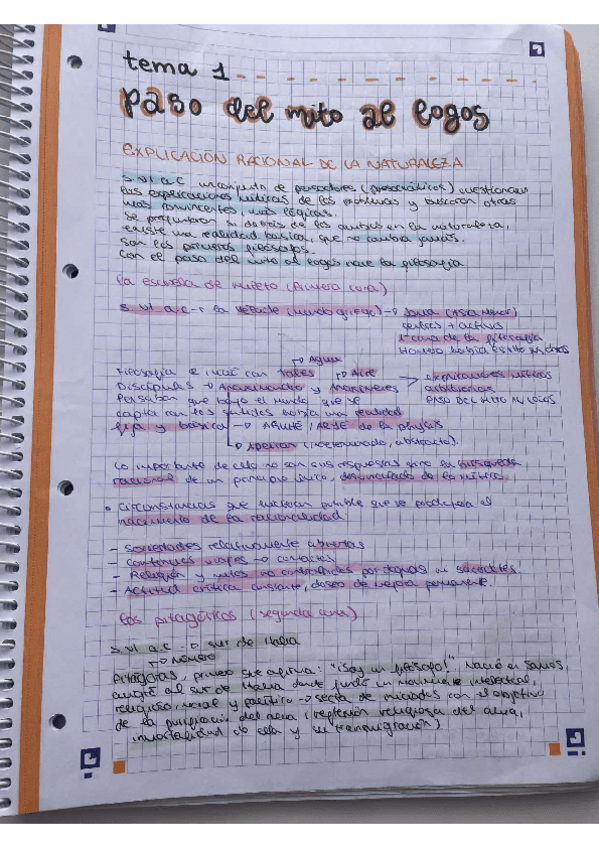 tema 1
paso del mito al logos
EXPLICACIÓN RACIONAL DE LA NATURALEZA
S. VI a.C un conjunto de pensadores (presocráticos) cuestionan
las explicaciones míticas de los y buscaron otras
más convincentes, más lógicas.
Se preguntaron si detrás de los cambios en la naturaleza,
existe una realidad básica, que no cambia jamás.
Son los primeros filósofos.
Con el paso del mito al logos nace la filosofía
La escuela de mileto (Primera cuna)
S. VI a.C → (mundo griego) → Jonia (Asia Menor)
+ activos
1ª cuna de la filosofía
Homero había escrito
→ Agua
Filosofía con Tales → Aire
Discípulos → Anaximandro y Anaxímenes
explicaciones míticas
arbitrarias
PASO DEL MITO AL LOGOS
Pensaban que bajo el mundo que se
capta con los sentidos había una realidad
fija y básica → AGUA / AIRE de la physis
→ Apeiron (indeterminado, abstracto).
Lo importante de ello no son sus respuestas sino la búsqueda
racional de un principio único,
• Circunstancias que hicieron posible que se produjera el
nacimiento de la racionalidad
- Sociedades relativamente abiertas
- Continuos viajes → contactos
- Religión y mitos no controlados por dogmas ni sacerdotes.
- Actitud crítica constante, deseo de mejora permanente.
Los pitagóricos (segunda cuna)
S. VI a.C → sur de Italia
→ NÚMERO
Pitágoras, primero que afirma: "¡Soy un filósofo!". Nació en Samos,
al sur de Italia donde fundó un movimiento intelectual,
religioso, social y político → secta de iniciados con el objetivo
de la purificación del alma (reflexión religiosa del alma,
inmortalidad de ella y su transmigración)